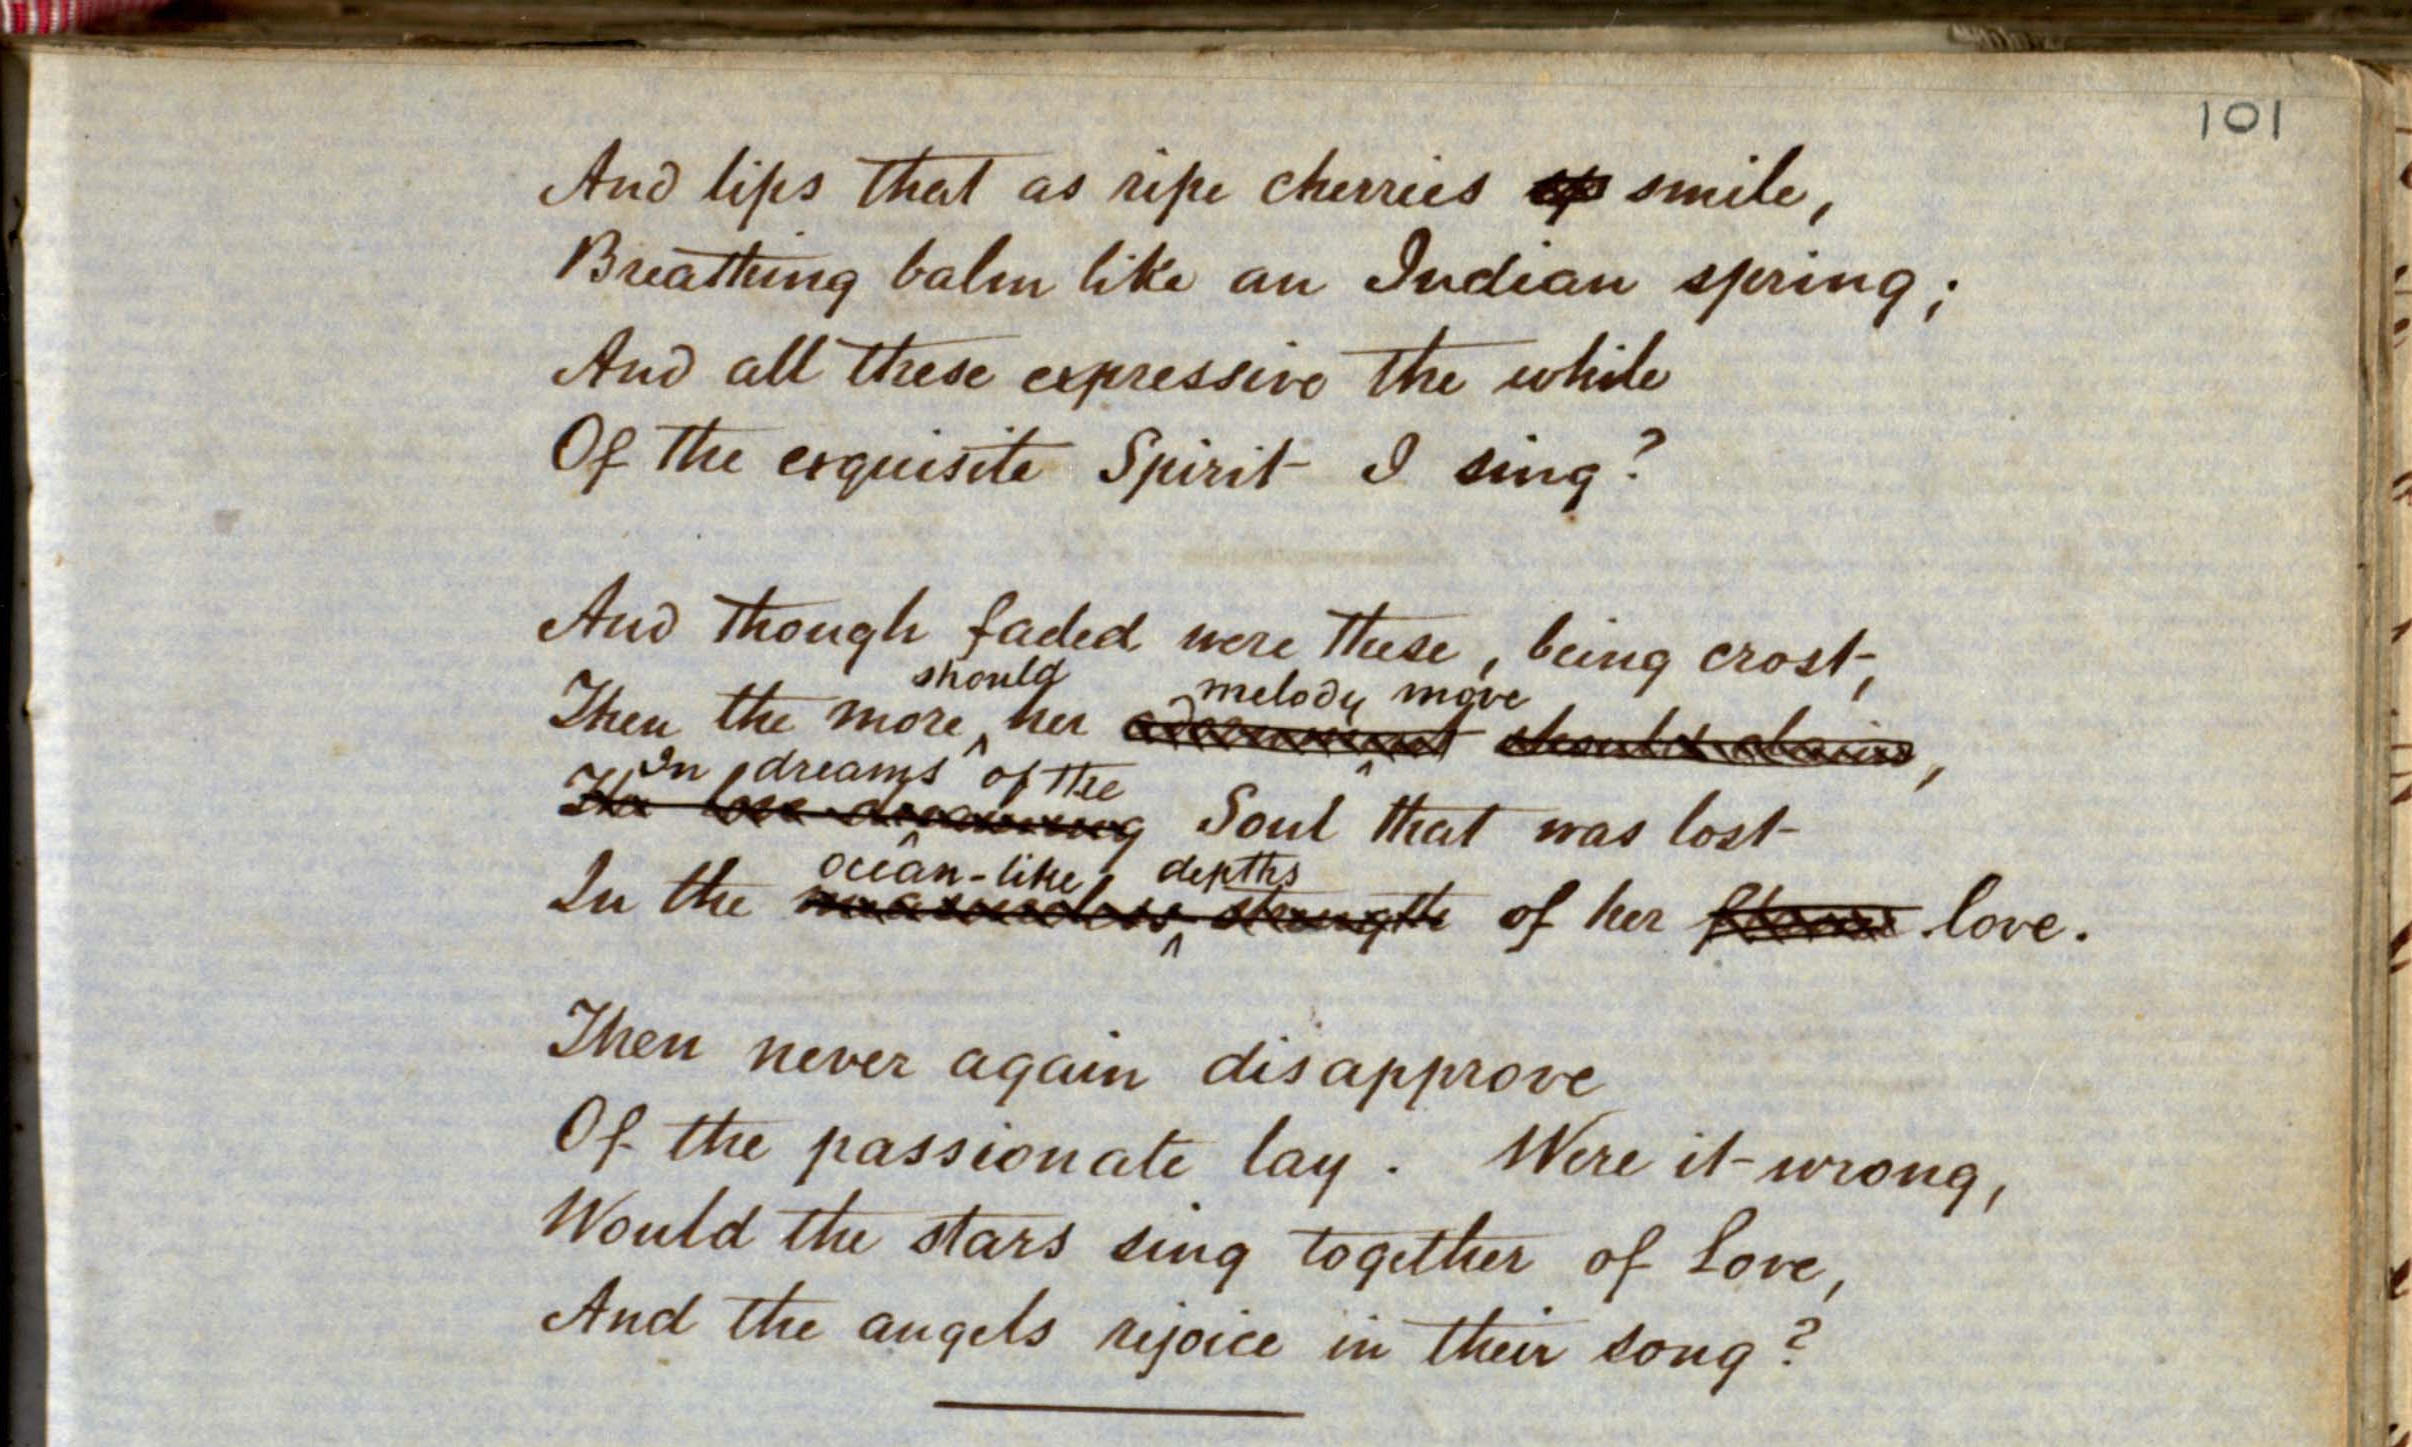 101
And lips that as ripe cherries smile,
Breathing balm like an Indian spring;
And all these expressive the while
Of the exquisite Spirit I sing?
And though faded were these, being crost,
should melody move
Then the more, her ,
In dreams of the
Soul that was lost
ocean-like depths
In the measureless strength of her love.
Then never again disapprove
Of the passionate lay. Were it wrong,
Would the stars sing together of Love,
And the angels rejoice in their song?